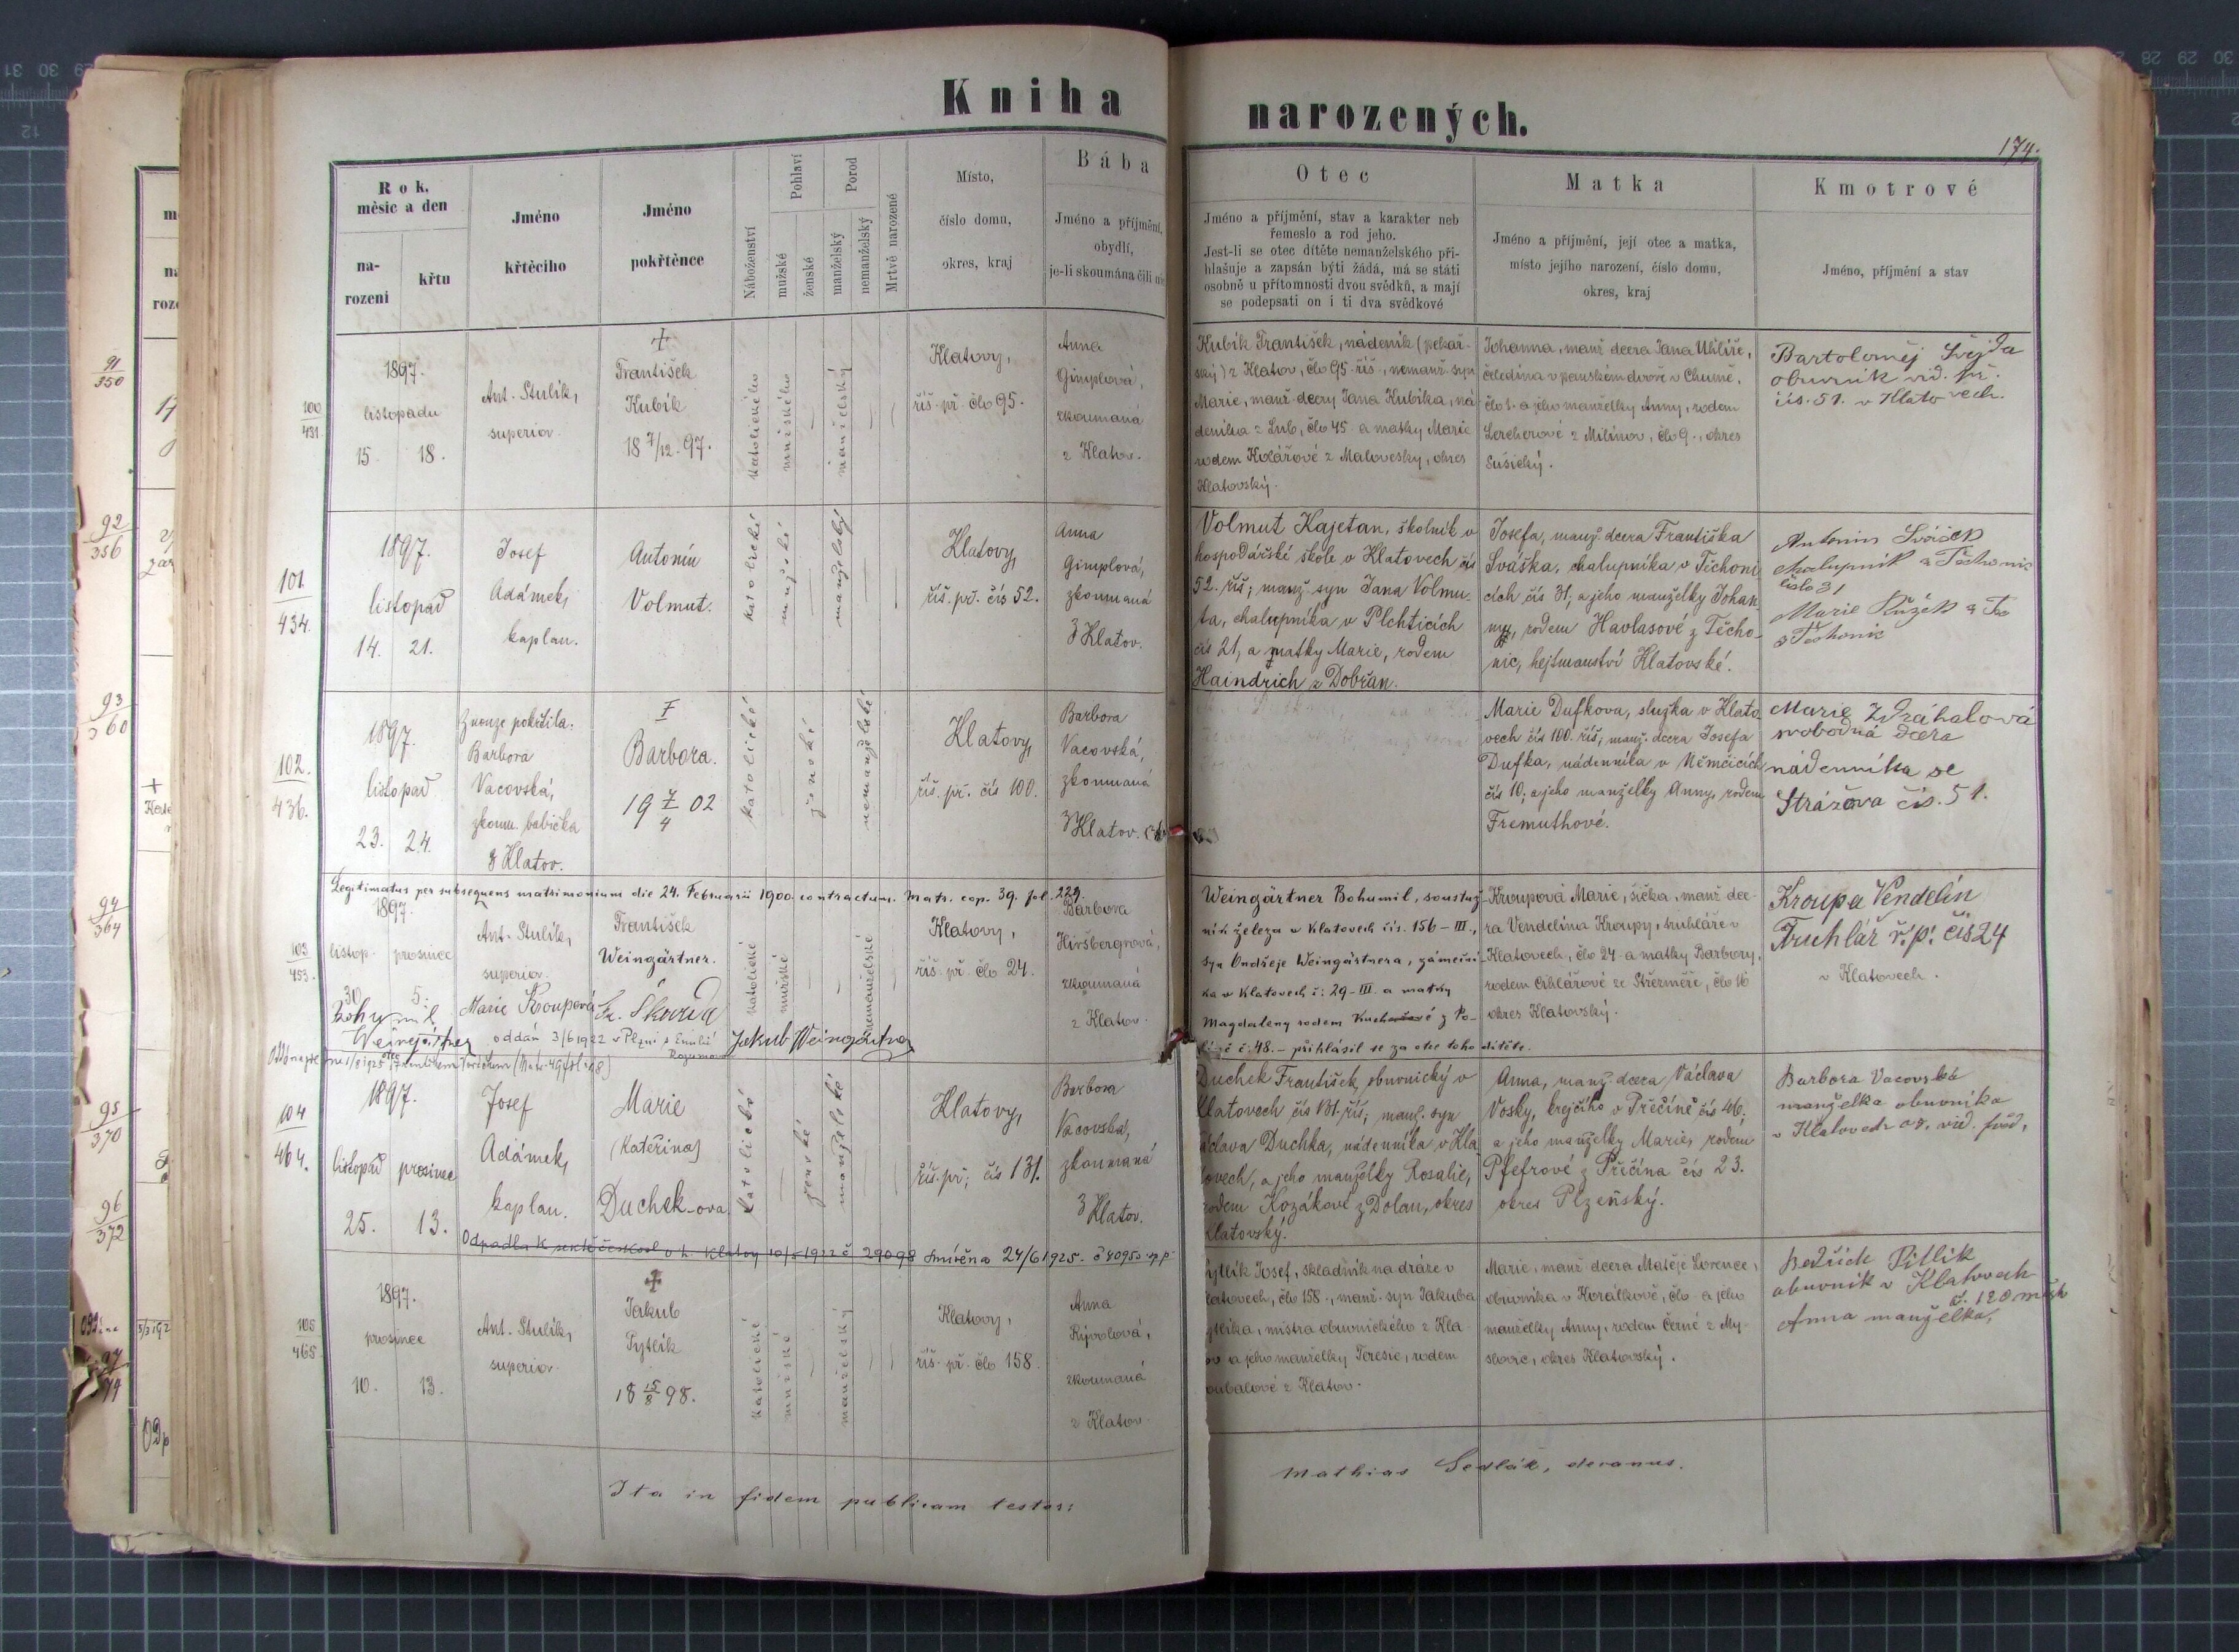 Kniha narozených.
174.
Rok, měsíc a den
narození
křtu
Jméno křtěcího
Jméno pokřtěnce
Náboženství
Pohlaví
mužské
ženské
Porod
manželský
nemanželský
Mrtvě narozené
Místo,
číslo domu,
okres, kraj
Bába
Jméno a příjmění,
obydlí,
je-li skoumána čili
Otec
Jméno a příjmění, stav a karakter neb
řemeslo a rod jeho.
Jest-li se otec dítěte nemanželského při-
hlašuje a zapsán býti žádá, má se státi
osobně u přítomnosti dvou svědků, a mají
se podepsati on i ti dva svědkové
Matka
Jméno a příjmění, její otec a matka,
místo jejího narození, číslo domu,
okres, kraj
Kmotrové
Jméno, příjmění a stav
91
350
92
356
93
360
94
364
95
370
96
372
100
431
1897.
listopadu
15. 18.
Ant. Stulík,
superior.
František
Kubík
18 7/12 97.
katolického
mužského
manželský
Klatovy,
říš. př. člo 95.
Anna
Gimplová,
zkoumaná
z Klatov.
Kubík František, nádeník (pekař-
ský) z Klatov, člo 95 říš., nemanž. syn
Marie, manž. dcery Jana Kubíka, ná-
deníka z Lub, člo 45 a matky Marie
rodem Kolářové z Malovesky, okres
Klatovský.
Johanna, manž. dcera Jana Uhlíře,
čeledína v panském dvoře v Chumě,
člo 1. a jeho manželky Anny, rodem
Lercherové z Milínov, člo 9., okres
Sušický.
Bartoloměj
obuvník víd. př.
čís. 51. v Klatovech.
101
434.
1897.
listopad
14. 21.
Josef
Adámek,
kaplan.
Antonín
Volmut.
katolické
mužské
manželský
Klatovy,
říš. př. čís 52.
Anna
Gimplová,
zkoumaná
z Klatov.
Volmut Kajetan, školník v
hospodářské škole v Klatovech čís
52. říš; manž. syn Jana Volmu-
ta, chalupníka v Plchticích
čís 21, a matky Marie, rodem
Haindrich z Dobřan.
Josefa, manž. dcera Františka
Sváška, chalupníka v Těchoni-
cích čís 31, a jeho manželky Johan-
ny, rodem Havlasové z Těcho-
nic, hejtmanství Klatovské.
Antonín Svášek
chalupník z Těchonic
číslo 31
Marie
z Těchonic
102.
436.
1897.
listopad
23. 24.
Z nouze pokřtila.
Barbora
Vacovská,
zkoum. babička
z Klatov.
Barbora.
19 7/4 02
katolické
ženské
nemanželské
Klatovy,
říš. př. čís 100.
Barbora
Vacovská,
zkoumaná
z Klatov.
Marie Dufkova, služka v Klato-
vech čís 100. říš; manž. dcera Josefa
Dufka, nádenníka v Němčicích
čís 10; a jeho manželky Anny, rodem
Fremuthové.
Marie Zdráhalová
svobodná dcera
nádenníka ze
Strážova čís. 51.
Legitimatus per subsequens matrimonium die 24. Februarii 1900 contractum. Matr. cop. 39. fol. 229.
103
453.
1897.
listop. prosince
30 5.
Ant. Stulík,
superior.
František
Weingärtner.
katolické
mužské
nemanželské
Klatovy,
říš. př. člo 24.
Barbora
Hiršbergrová,
zkoumaná
z Klatov.
Weingärtner Bohumil, soustruž-
ník železa v Klatovech čís. 156-III.,
syn Ondřeje Weingärtnera, zámeční-
ka v Klatovech č: 29-III. a matky
Magdaleny rodem z Po-
č: 48. - přihlásil se za otce toho dítěte.
Kroupová Marie, šička, manž. dce-
ra Vendelína Kroupy, truhláře v
Klatovech, člo 24 a matky Barbory,
rodem Cihlářové ze Střezměře, člo 16
okres Klatovský.
Kroupa Vendelín
Truhlář ř. p. čís 24
v Klatovech.
Marie Kroupová
Bohumil
Weingärtner
oddán 3/6 1922 v Plzni s Emilií
Jakub Weingärtner
104
464.
1897.
listopad prosinec
25. 13.
Josef
Adámek,
kaplan.
Marie
(Kateřina)
Duchek-ova
katolické
ženské
manželské
Klatovy,
říš. př; čís 131.
Barbora
Vacovská,
zkoumaná
z Klatov.
Duchek František, obuvnický v
Klatovech čís 131. říš; manž. syn
Václava Duchka, nádenníka v Kla-
tovech, a jeho manželky Rosalie,
rodem Kozákové z Dolan, okres
Klatovský.
Anna, manž. dcera Václava
Vosky, krejčího v Přečíně čís 46;
a jeho manželky Marie, rodem
Pfefrové z Přečína čís 23.
okres Plzeňský.
Barbora Vacovská
manželka obuvníka
v Klatovech
Odpadla k sektě českosl. v h. Klatovy 10/5 1922 č 29098 Smířena 24/6 1925.
105
465
1897.
prosince
10. 13.
Ant. Stulík,
superior.
Jakub
Pytlík
18 15/8 98.
katolické
mužské
manželský
Klatovy,
říš. př. člo 158.
Anna
zkoumaná
z Klatov.
Pytlík Josef, skladník na dráze v
Klatovech, člo 158., manž. syn Jakuba
Pytlíka, mistra obuvnického z Kla-
tov a jeho manželky Teresie, rodem
z Klatov.
Marie, manž. dcera Matěje Lorence,
obuvníka v Korálkově, člo a jeho
manželky Anny, rodem Černé z My-
slovic, okres Klatovský.
Bedřich Pitlik
obuvník v Klatovech
č. 120
Anna manželka,
Ita in fidem publicam testor:
Mathias Sedlák, decanus.